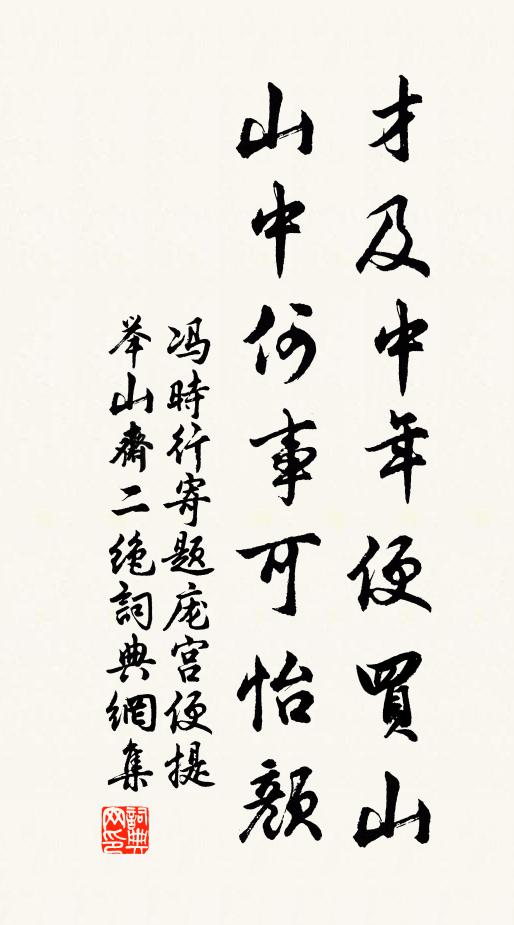 才及中年便買山
山中何事可怡顏
冯時行寄题庞宫使提
举山齋二绝詞典網集
詞典網印